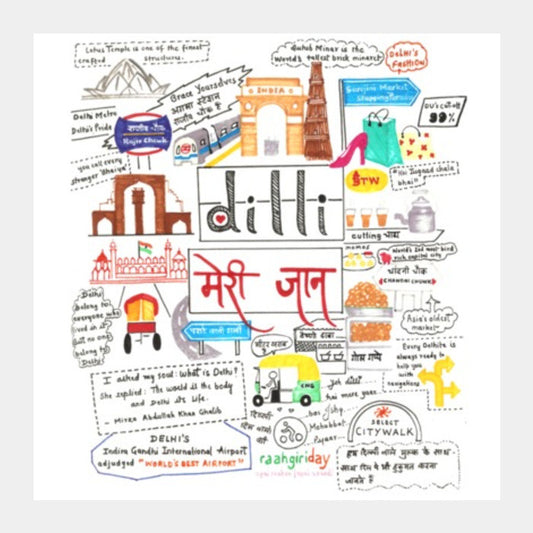 Lotus Temple is one of the finest
crafted structures.
Qutub Minar is the
World's tallest brick minaret
DELHI'S
FASHION
Sarojini Market
Shopping Paradise
DU's cut-off
99%
Brace Yourselves
अगला स्टेशन
राजीव चौक है
INDIA
Delhi Metro
Delhi's Pride
राजीव चौक
Rajiv Chowk
you call every
stranger 'Bhaiya'
dilli
मेरी जान
"Yai Jugaad chala
bhai"
STW
cutting चाय
momos
World's 2nd most bird
rich capital city
चांदनी चौक
CHANDNI CHOWK
Asia's oldest
market
Delhi
belong to
everyone who
lived in it
But no one
belong to
Delhi
पराठे वाली गली
गोल गप्पे
CNG
Every Delhite is
always ready to
help you
with
navigations
I asked my soul: What is Delhi?
She replied: The world is the body
and Delhi its life.
- Mirza Abdullah Khan Ghalib
Yeh dilli
hai mere yaar
bas ishq
Mohabbat
Pyaar
SELECT
CITYWALK
DELHI'S
Indira Gandhi International Airport
adjudged "WORLD'S BEST AIRPORT"
raahgiriday
apni raahein apni azaadi
हम दिल्ली वाले मुल्क के साथ
साथ दिल पे भी हुकूमत करना
जानते हैं